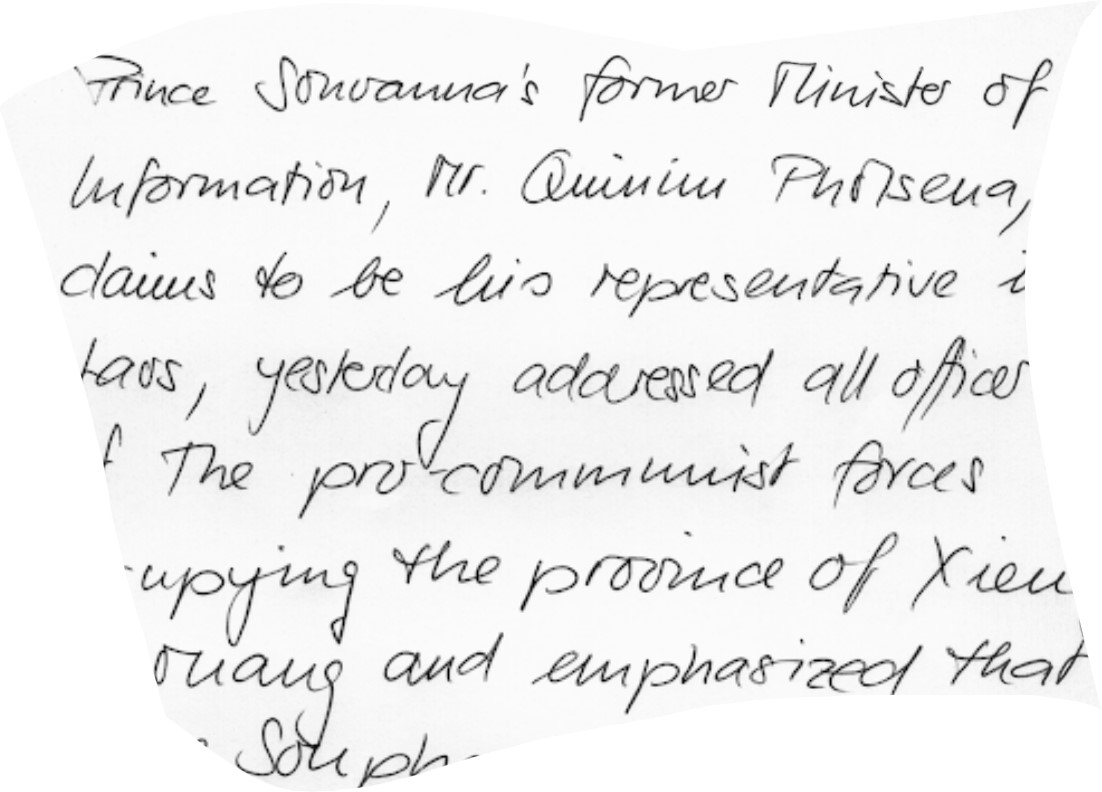 Prince Souvanna's former Minister of
Information, Mr. Quinim Pholsena,
claims to be his representative
Laos, yesterday addressed all
the pro-communist forces
the province of
and emphasized that